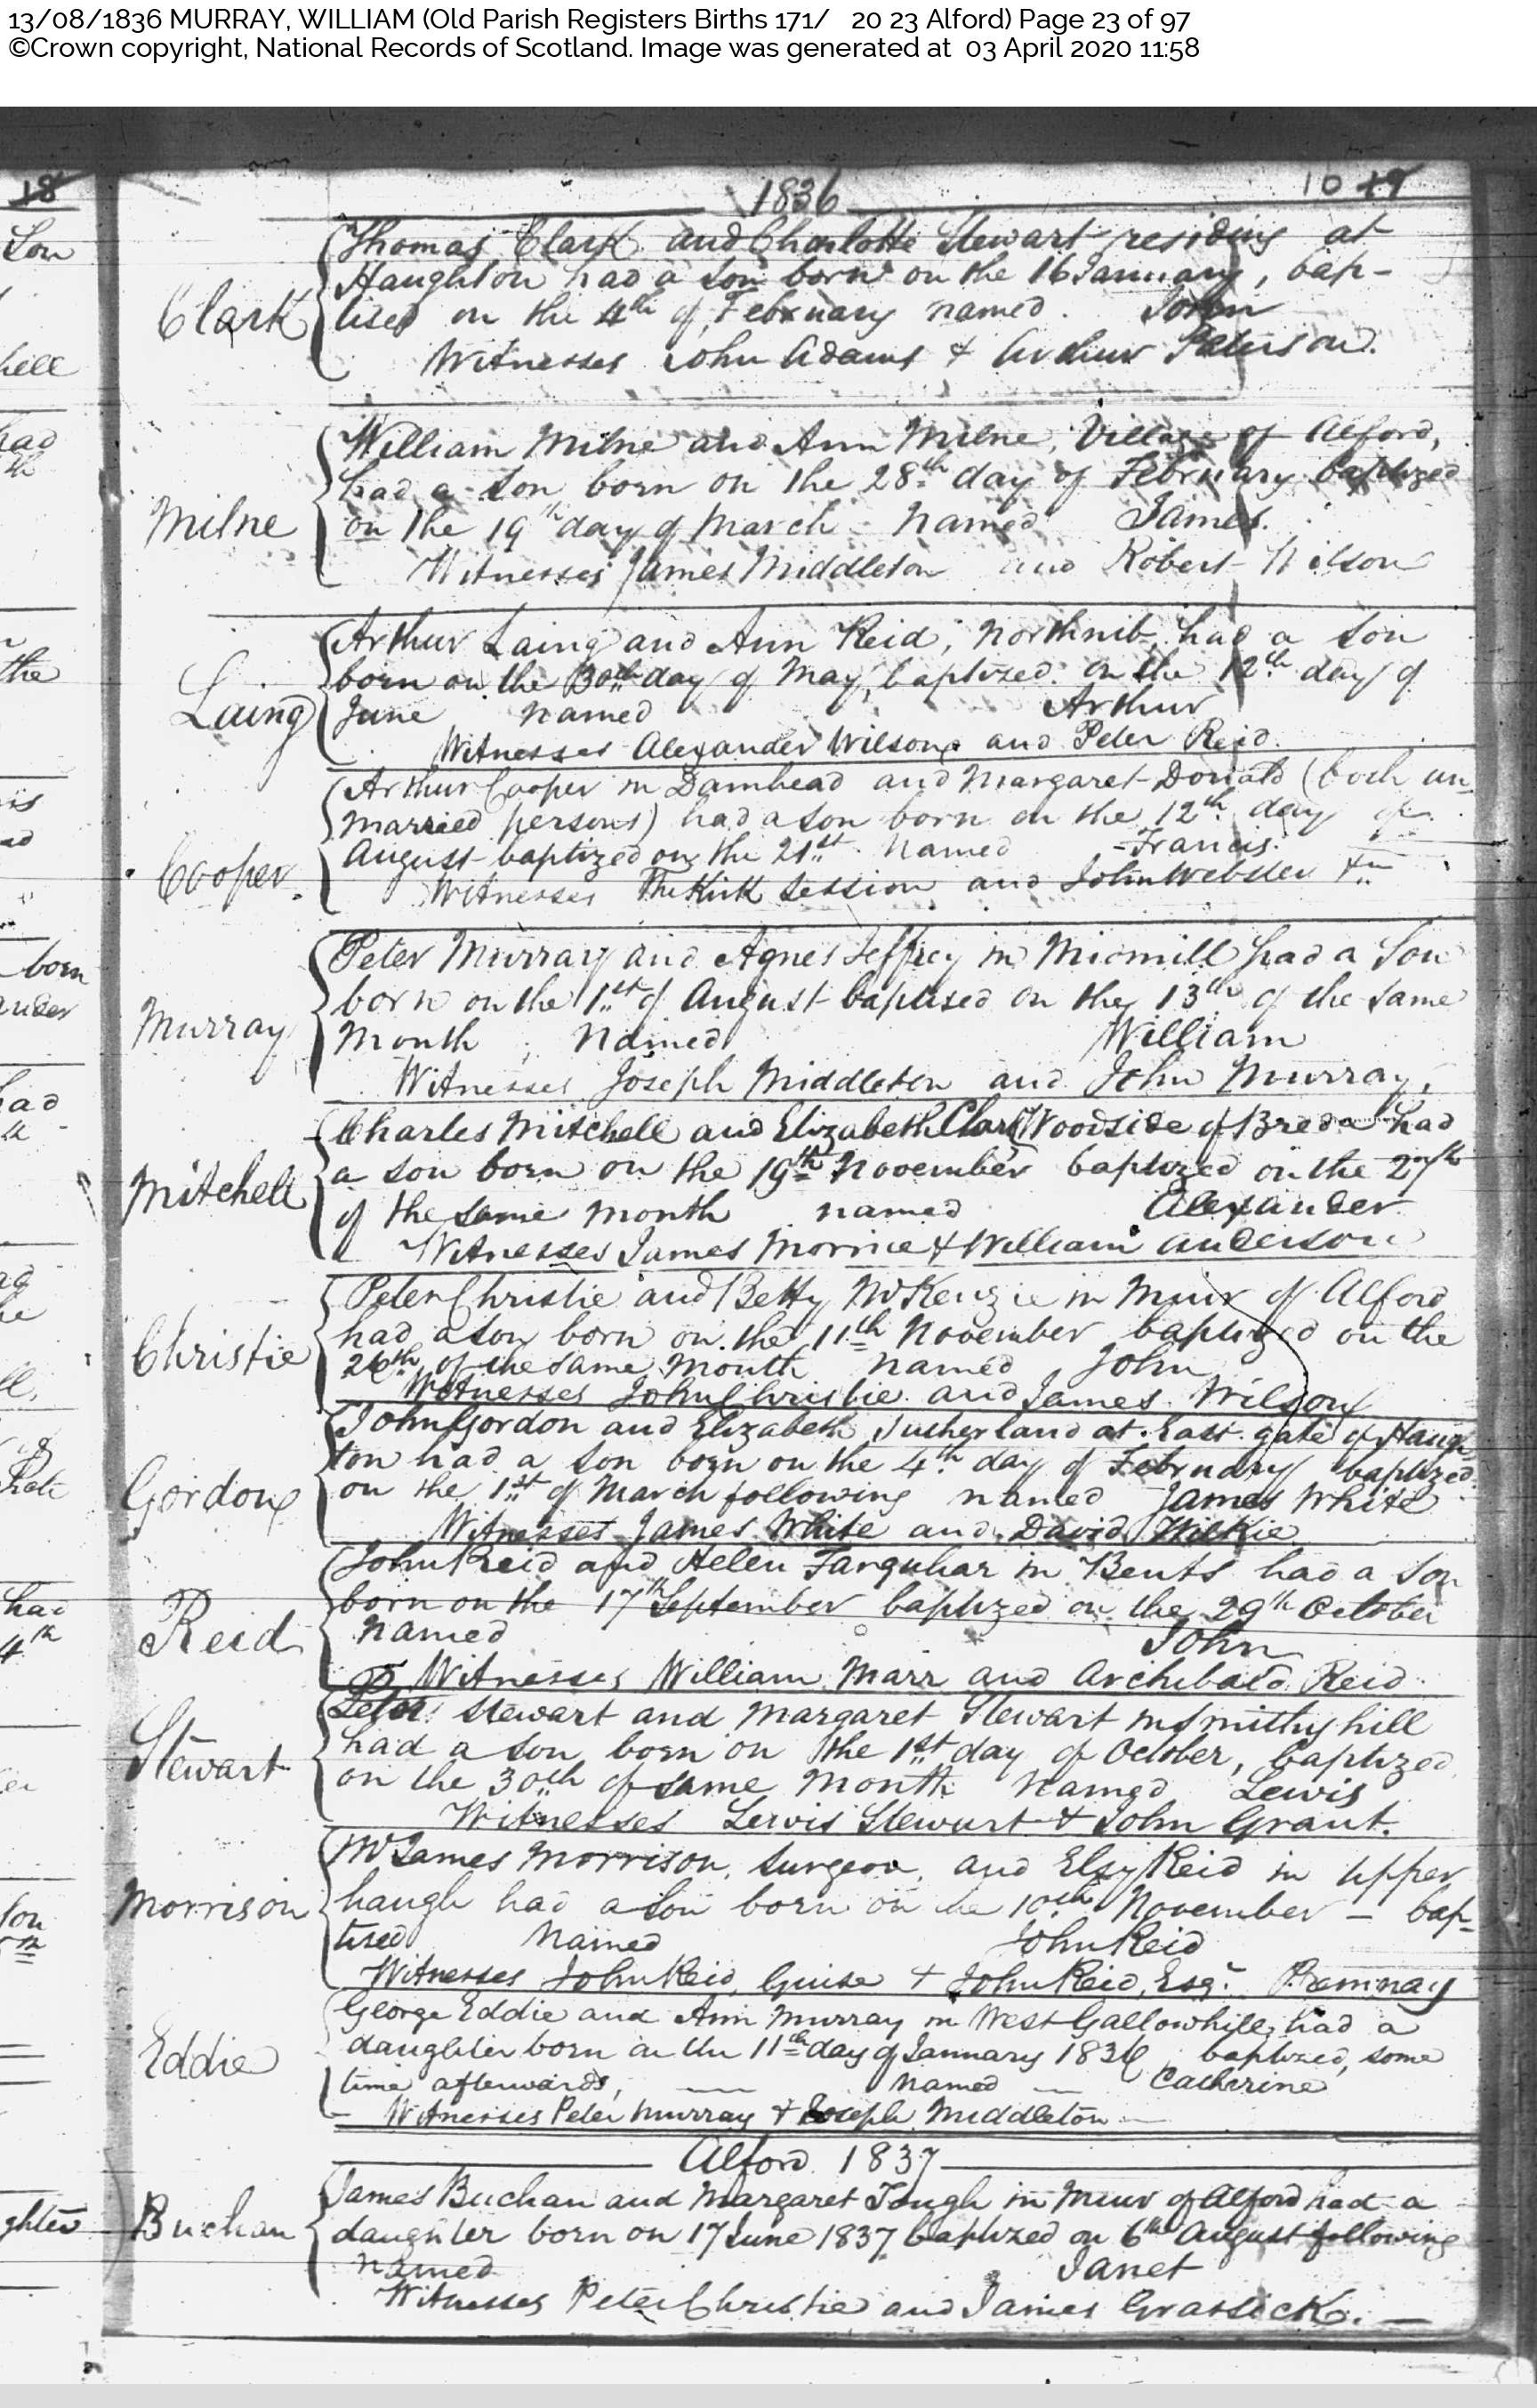 13/08/1836 MURRAY, WILLIAM (Old Parish Registers Births 171/ 20 23 Alford) Page 23 of 97
©Crown copyright, National Records of Scotland. Image was generated at 03 April 2020 11:58
18
1836
10 19
Son
hell
had
th
the
born
had
had
4th
Son
ghter
Clark
Thomas Clark and Charlotte Stewart residing at
Haughton had a son born on the 16 January, bap-
tised on the 4th of February named. John
Witnesses John Adams & Arthur Paterson.
Milne
William Milne and Ann Milne, Village of Alford,
had a son born on the 28th day of February baptized
on the 19th day of March named James.
Witnesses James Middleton and Robert Wilson
Laing
Arthur Laing and Ann Reid, had a son
born on the 30th day of May, baptized on the 12th day of
June named Arthur
Witnesses Alexander Wilson and Peter Reid.
Cooper
Arthur Cooper in Damhead and Margaret Donald (both un-
married persons) had a son born on the 12th day of
August baptized on the 21st named Francis.
Witnesses The Kirk Session and John Webster
Murray
Peter Murray and Agnes Jeffrey in Midmill had a Son
born on the 1st of August baptised on the 13th of the same
Month, Named William
Witnesses Joseph Middleton and John Murray,
Mitchell
Charles Mitchell and Elizabeth Clark Woodside of Breda had
a son born on the 19th November baptized on the 27th
of the same month named Alexander
Witnesses James Morrice & William Anderson
Christie
Peter Christie and Betty McKenzie in Muir of Alford
had a son born on the 11th November baptized on the
26th of the same month named John
Witnesses John Christie and James Wilson
Gordon
John Gordon and Elizabeth Sutherland at East gate of Haugh-
ton had a son born on the 4th day of February baptized
on the 1st of March following named James White
Witnesses James White and David Wilkie
Reid
John Reid and Helen Farquhar in Bents had a son
born on the 17th September baptized on the 29th October
named John
Witnesses William Marr and Archibald Reid
Stewart
Peter Stewart and Margaret Stewart in Smithyhill
had a son born on the 1st day of October, baptized
on the 30th of same Month Named Lewis
Witnesses Lewis Stewart & John Grant.
Morrison
Mr James Morrison, Surgeon, and Elsy Reid in Upper
haugh had a son born on the 10th November - bap-
tised Named John Reid
Witnesses John Reid, Guise & John Reid, Esqr. Premnay
Eddie
George Eddie and Ann Murray in West Gallowhill, had a
daughter born on the 11th day of January 1836, baptized, some
time afterwards, named Catherine
Witnesses Peter Murray & Joseph Middleton
Alford 1837
Buchan
James Buchan and Margaret Tough in Muir of Alford had a
daughter born on 17 June 1837 baptized on 6th August following
named Janet
Witnesses Peter Christie and James Grassick.